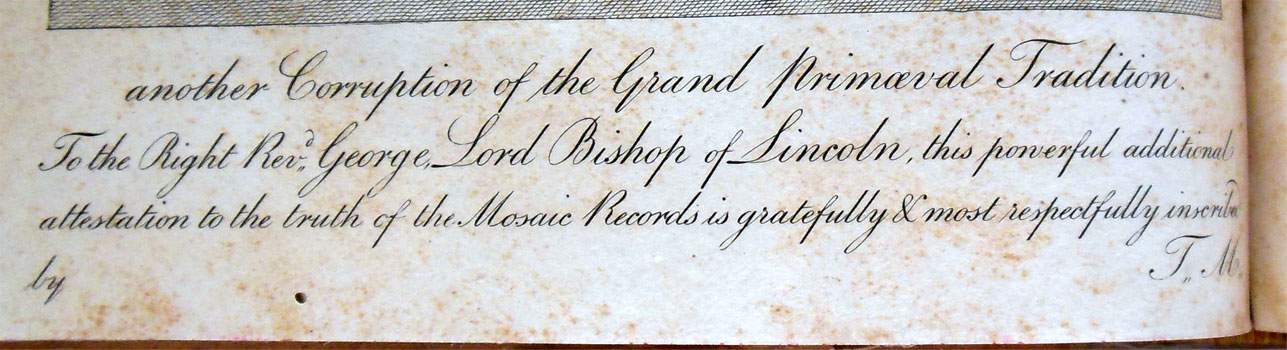 another Corruption of the Grand Primæval Tradition.
To the Right Rev.d George, Lord Bishop of Lincoln, this powerful additional
attestation to the truth of the Mosaic Records is gratefully & most respectfully inscrib'd
by T. M.